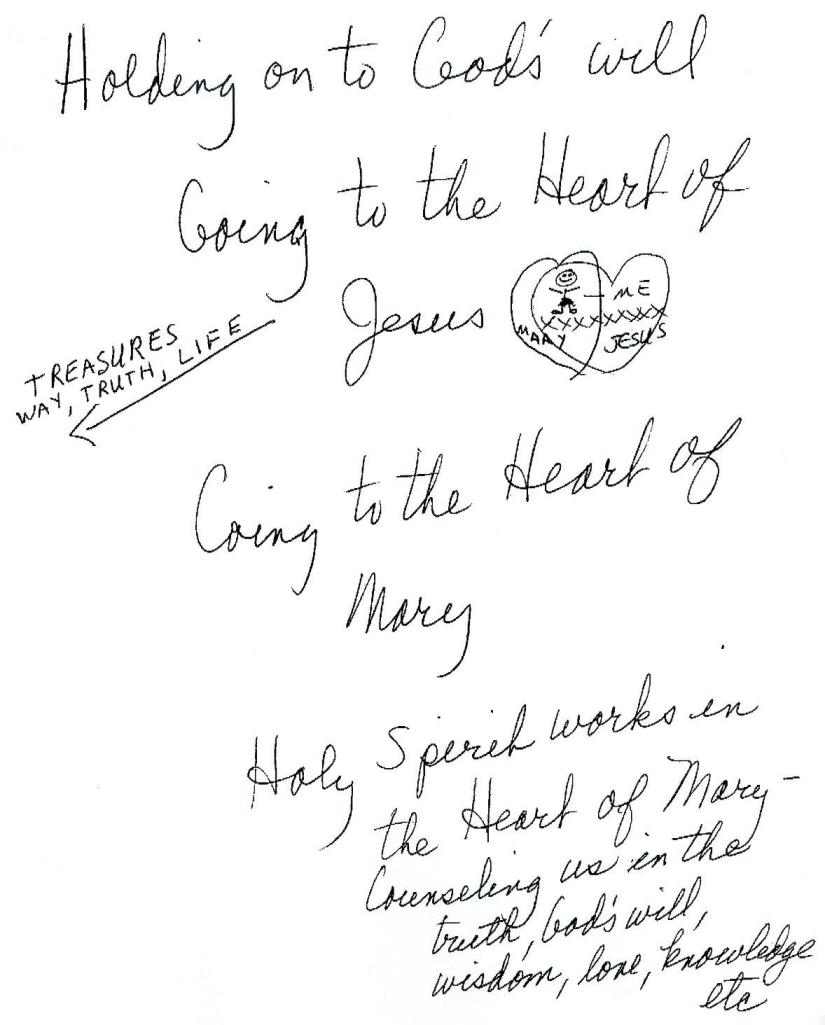 Holding on to God's will
Going to the Heart of
Jesus
ME
XXXXXXXX
MARY JESUS
TREASURES
WAY, TRUTH, LIFE
Going to the Heart of
Mary
Holy Spirit works in
the Heart of Mary-
Counseling us in the
truth, God's will,
wisdom, love, knowledge
etc